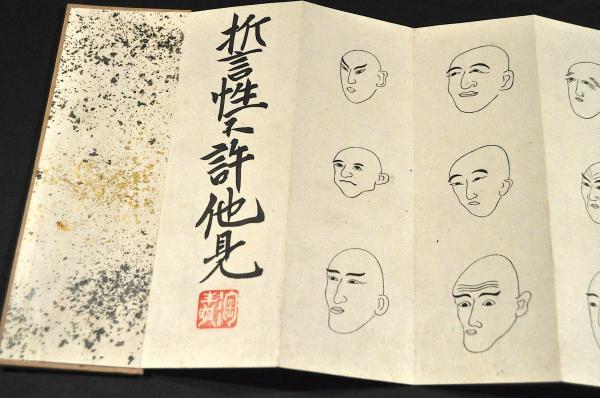 誓性不許他見